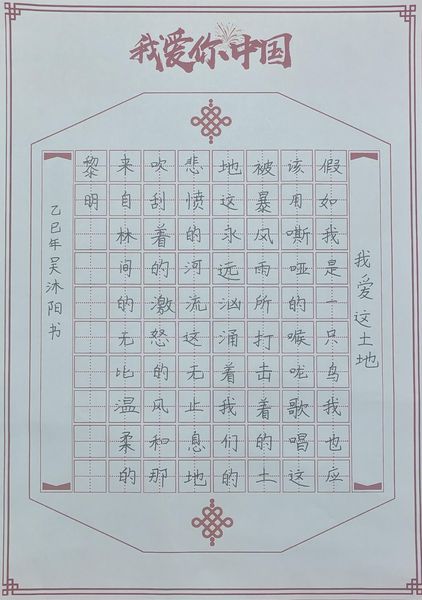 我爱你中国
我爱这土地
假如我是一只鸟我也应
该用嘶哑的喉咙歌唱这
被暴风雨所打击着的土
地这永远汹涌着我们的
悲愤的河流这无止息地
吹刮着的激怒的风和那
来自林间的无比温柔的
黎明
乙巳年吴沐阳书